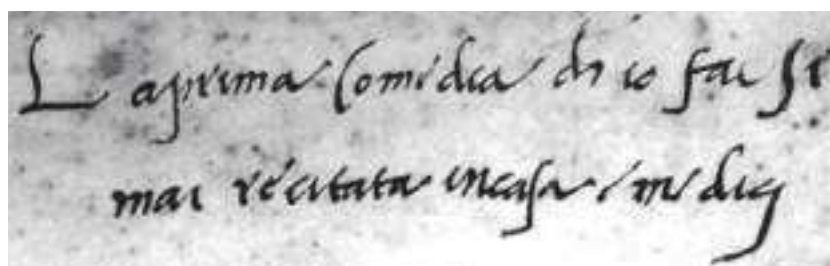 La prima Comedia ch io
mai recitata in casa i medicj